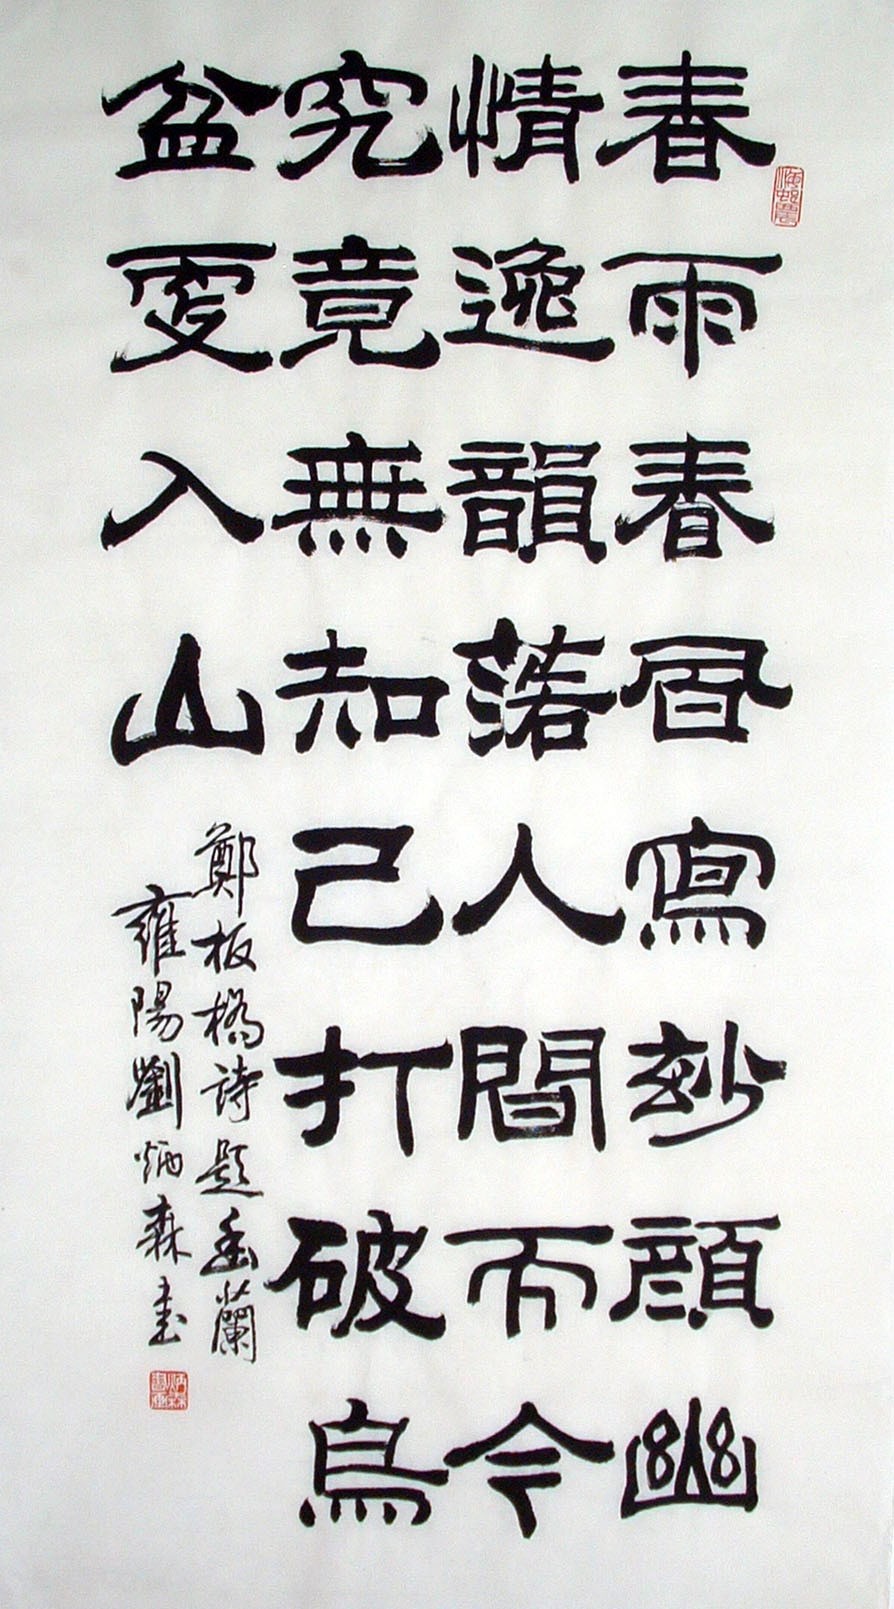 春雨春風寫妙顏幽
情逸韻落人間而今
究竟無知己打破烏
盆更入山
鄭板橋詩題畫蘭
雍陽劉炳森書